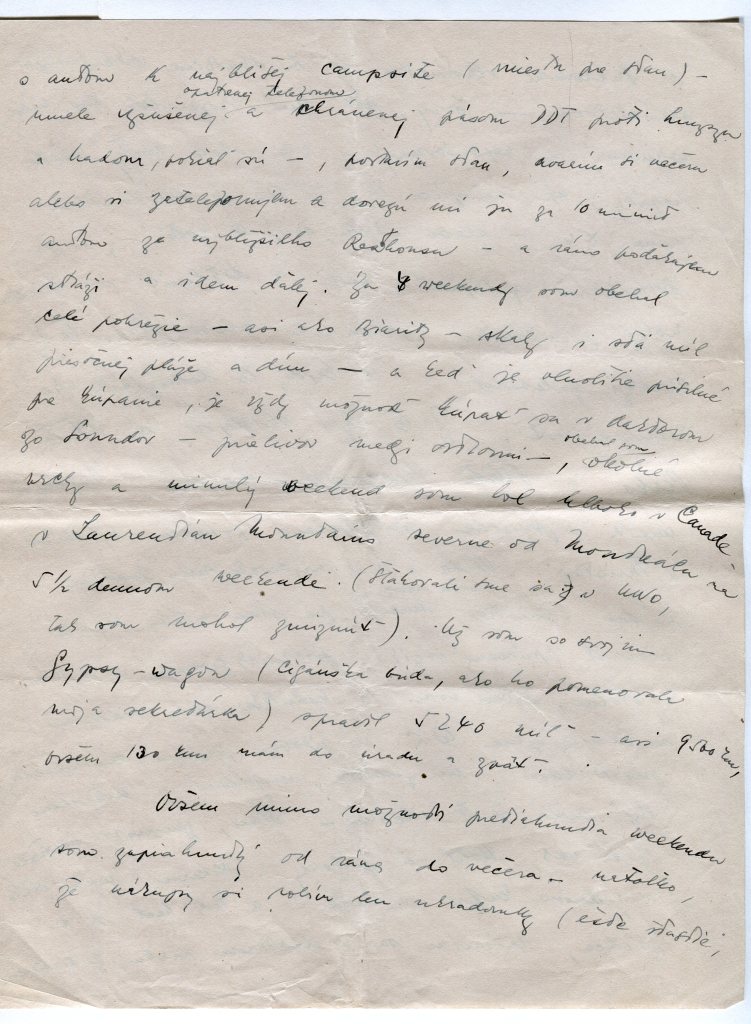 s autom k najbližšej campsite (miesta pre stan) –
opatrenej telefonom
umele vysušenej a chránenej pásom DDT proti hmyzu
a hadom, pokiaľ sú –, postavím stan, uvarím si večeru
alebo si zatelefonujem a dovezú mi ju za 10 minút
autom zo najbližšieho – a ráno poďakujem
stráži a idem ďalej. Za 4 weekendy som obehal
celé pobrežie – asi ako – skaly i sta míl
piesočnej pláže a dún – a keď je príliš
pre kúpanie, je vždy možnosť kúpať sa v
zo Soundov – prielivov medzi ostrovmi –, obehal som okolité
vrchy a minulý weekend som bol hlboko v Canade
v Laurentian Mountains severne od Montreálu na
5 1/2 dennom weekende. (Sťahovali sme sa v UNO,
tak som mohol zmiznúť). Už som so svojim
Gypsy-wagon (Cigánska búda, ako ho pomenovala
moja sekretárka) spravil 5240 míľ – asi 9500 km,
ovšem 130 km mám do úradu a zpäť.
Ovšem mimo možnosti weekendu
som zapriahnutý od rána do večera – natoľko,
že nákupy si robím len úkradomky (ešte šťastie,